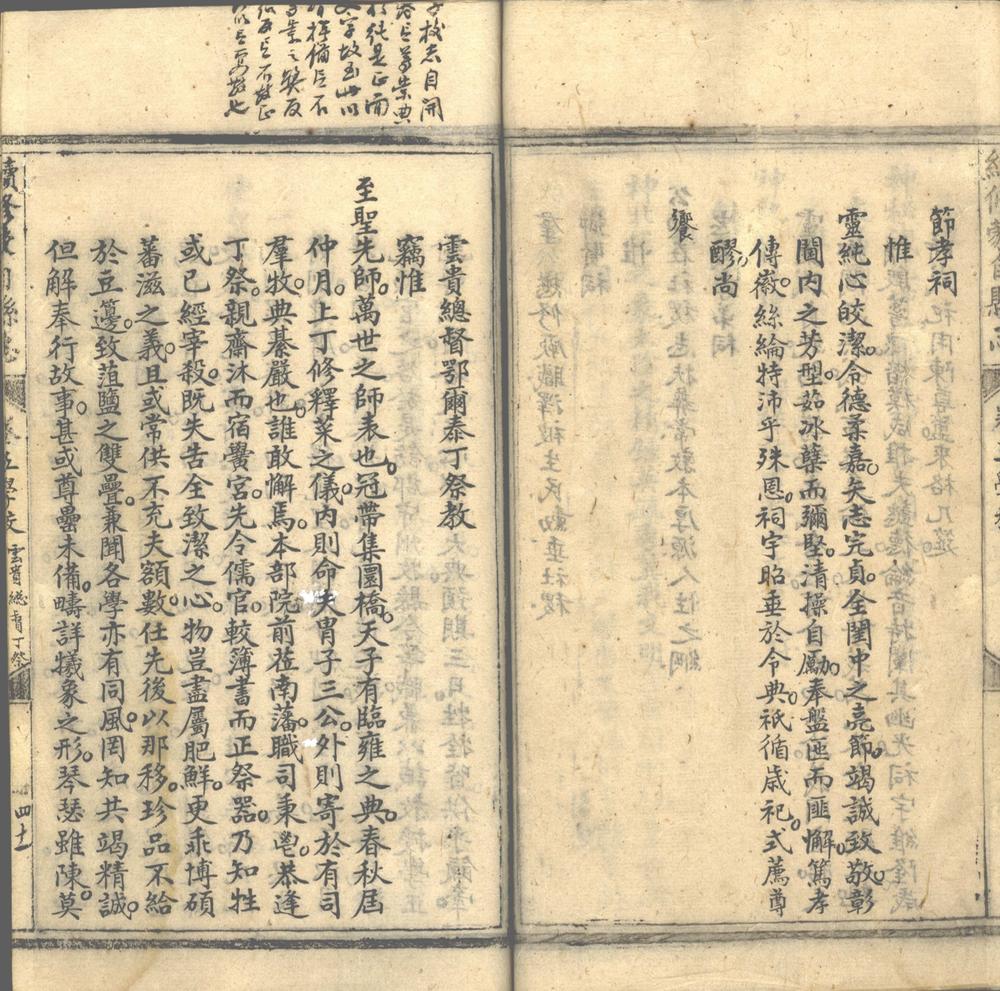 節孝祠
惟
靈純心皎潔令德柔嘉矢志完貞全閨中之亮節竭誠致敬彰
閫内之芳型茹冰蘖而彌堅清操自勵奉盤匜而匪懈篤孝
傳徽絲綸特沛乎殊恩祠宇昭垂於令典祇循歲祀式薦尊
醪尚
饗
雲貴總督鄂爾泰丁祭教
竊惟
至聖先師萬世之師表也冠帶集圜橋天子有臨雍之典春秋屆
仲月上丁修釋菜之儀内則命夫胄子三公外則寄於有司
羣牧典綦嚴也誰敢懈焉本部院前莅南藩職司秉鬯恭逢
丁祭親齋沐而宿黌宮先令儒官較簿書而正祭器乃知牲
或已經宰殺既失告全致潔之心物豈盡屬肥鮮更乖博碩
蕃滋之義且或常供不充夫額數任先後以那移珍品不給
於豆籩致菹鹽之雙疊兼聞各學亦有同風罔知共竭精誠
但解奉行故事甚或尊罍未備疇詳犧象之形琴瑟雖陳莫
雲貴總督丁祭